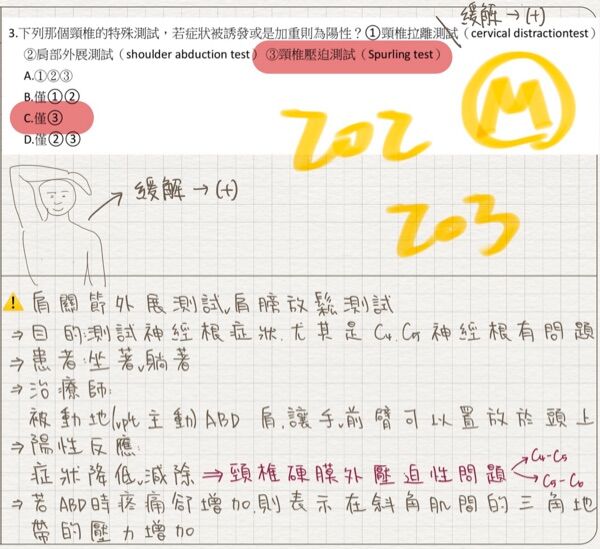 緩解→(+)
3.下列那個頸椎的特殊測試，若症狀被誘發或是加重則為陽性？①頸椎拉離測試（cervical distractiontest）
②肩部外展測試（shoulder abduction test）③頸椎壓迫測試（Spurling test）
A.①②③
B.僅①②
C.僅③
D.僅②③
M
202
203
緩解→(+)
肩關節外展測試、肩膀放鬆測試
⇒目的:測試神經根症狀.尤其是C4.C5神經根有問題
⇒患者:坐著、躺著
⇒治療師:
被動地(、pt主動)ABD肩,讓手、前臂可以置放於頭上
⇒陽性反應:
症狀降低、減除⇒頸椎硬膜外壓迫性問題
C4-C5
C5-C6
⇒若ABD時疼痛卻增加,則表示在斜角肌間的三角地
帶的壓力增加